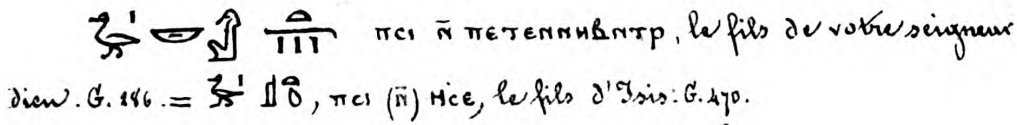 𓅭𓏤 𓎟 𓀭 𓊵 ⲡⲥⲓ ⲛ̄ ⲡⲉⲧⲉⲛⲛⲏⲃⲛⲧⲣ, le fils de votre seigneur
dieu. G. 286. = 𓅭𓏤 𓊨𓏏𓆇, ⲡⲥⲓ (ⲛ̄) ⲏⲥⲉ, le fils d'Isis: G. 470.